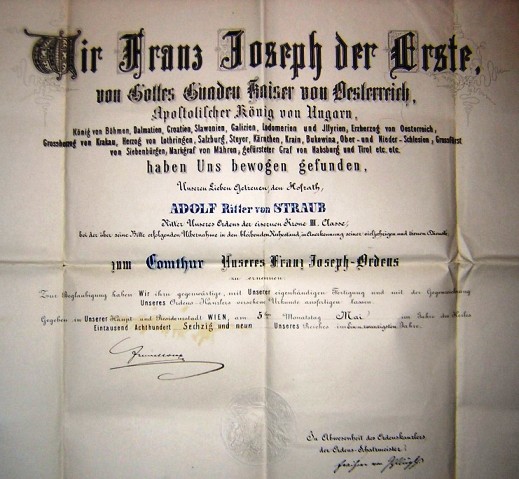 Wir Franz Joseph der Erste,
von Gottes Gnaden Kaiser von Oesterreich,
Apostolischer König von Ungarn,
König von Böhmen, Dalmatien, Croatien, Slawonien, Galizien, Lodomerien und Illyrien, Erzherzog von Oesterreich,
Grossherzog von Krakau, Herzog von Lothringen, Salzburg, Steyer, Kärnthen, Krain, Bukowina, Ober- und Nieder-Schlesien, Grossfürst
von Siebenbürgen, Markgraf von Mähren, gefürsteter Graf von Habsburg und Tirol etc. etc.
haben Uns bewogen gefunden,
Unseren Lieben Getreuen, den Hofrath,
ADOLF Ritter von STRAUB
Ritter Unseres Ordens der eisernen Krone III. Classe,
bei der über seine Bitte erfolgenden Uebernahme in den bleibenden Ruhestand, in Anerkennung seiner vieljährigen und treuen Dienste,
zum Comthur Unseres Franz Joseph-Ordens
zu ernennen.
Zur Beglaubigung haben Wir ihm gegenwärtige, mit Unserer eigenhändigen Fertigung und mit der Gegenzeichnung
Unseres Ordens-Kanzlers versehene Urkunde ausfertigen lassen.
Gegeben in Unserer Haupt und Residenzstadt WIEN, am 5ten Monatstag Mai im Jahre des Heiles
Eintausend Achthundert Sechzig und neun Unseres Reiches im einundzwanzigsten Jahre.
In Abwesenheit des Ordenskanzlers
der Ordens-Schatzmeister:
Freiherr von